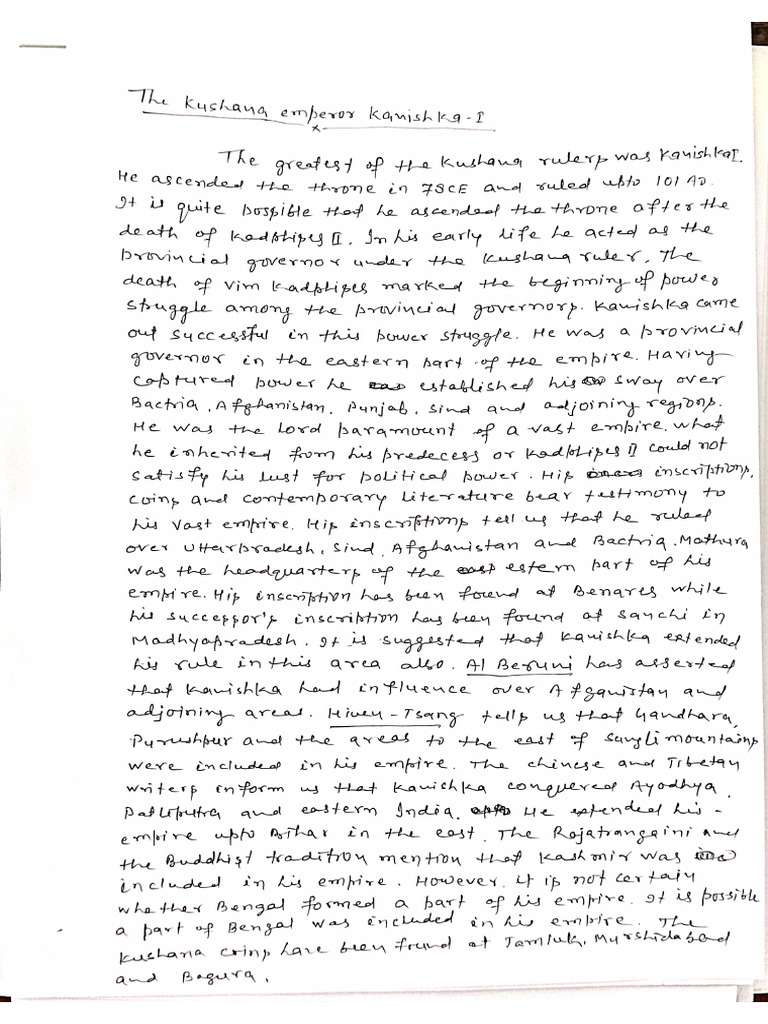 The Kushana emperor Kanishka-I
x
The greatest of the Kushana rulers was Kanishka I.
He ascended the throne in 78CE and ruled upto 101 AD.
It is quite possible that he ascended the throne after the
death of Kadphises II. In his early life he acted as the
provincial governor under the Kushana ruler. The
death of Vim Kadphises marked the beginning of power
struggle among the provincial governors. Kanishka came
out successful in this power struggle. He was a provincial
governor in the eastern part of the empire. Having
captured power he established his sway over
Bactria, Afghanistan, Punjab, Sind and adjoining regions.
He was the Lord paramount of a vast empire. What
he inherited from his predecess or Kadphises II could not
satisfy his lust for political power. His inscriptions,
coins and contemporary literature bear testimony to
his vast empire. His inscriptions tell us that he ruled
over Uttarpradesh, Sind, Afghanistan and Bactria. Mathura
was the headquarters of the estern part of his
empire. His inscription has been found at Benares while
his successor's inscription has been found at Sanchi in
Madhyapradesh. It is suggested that Kanishka extended
his rule in this area also. Al Beruni has asserted
that Kanishka had influence over Afganistan and
adjoining areas. Hiuen-Tsang tells us that Gandhara,
Purushpur and the areas to the east of Sungli mountains
were included in his empire. The chinese and Tibetan
writers inform us that Kanishka conquered Ayodhya,
Patliputra and eastern India. He extended his -
empire upto Bihar in the east. The Rajatrangaini and
the Buddhist tradition mention that Kashmir was
included in his empire. However, it is not certain
whether Bengal formed a part of his empire. It is possible
a part of Bengal was included in his empire. The
Kushana coins have been found at Tamluk, Murshidabad
and Bogura.